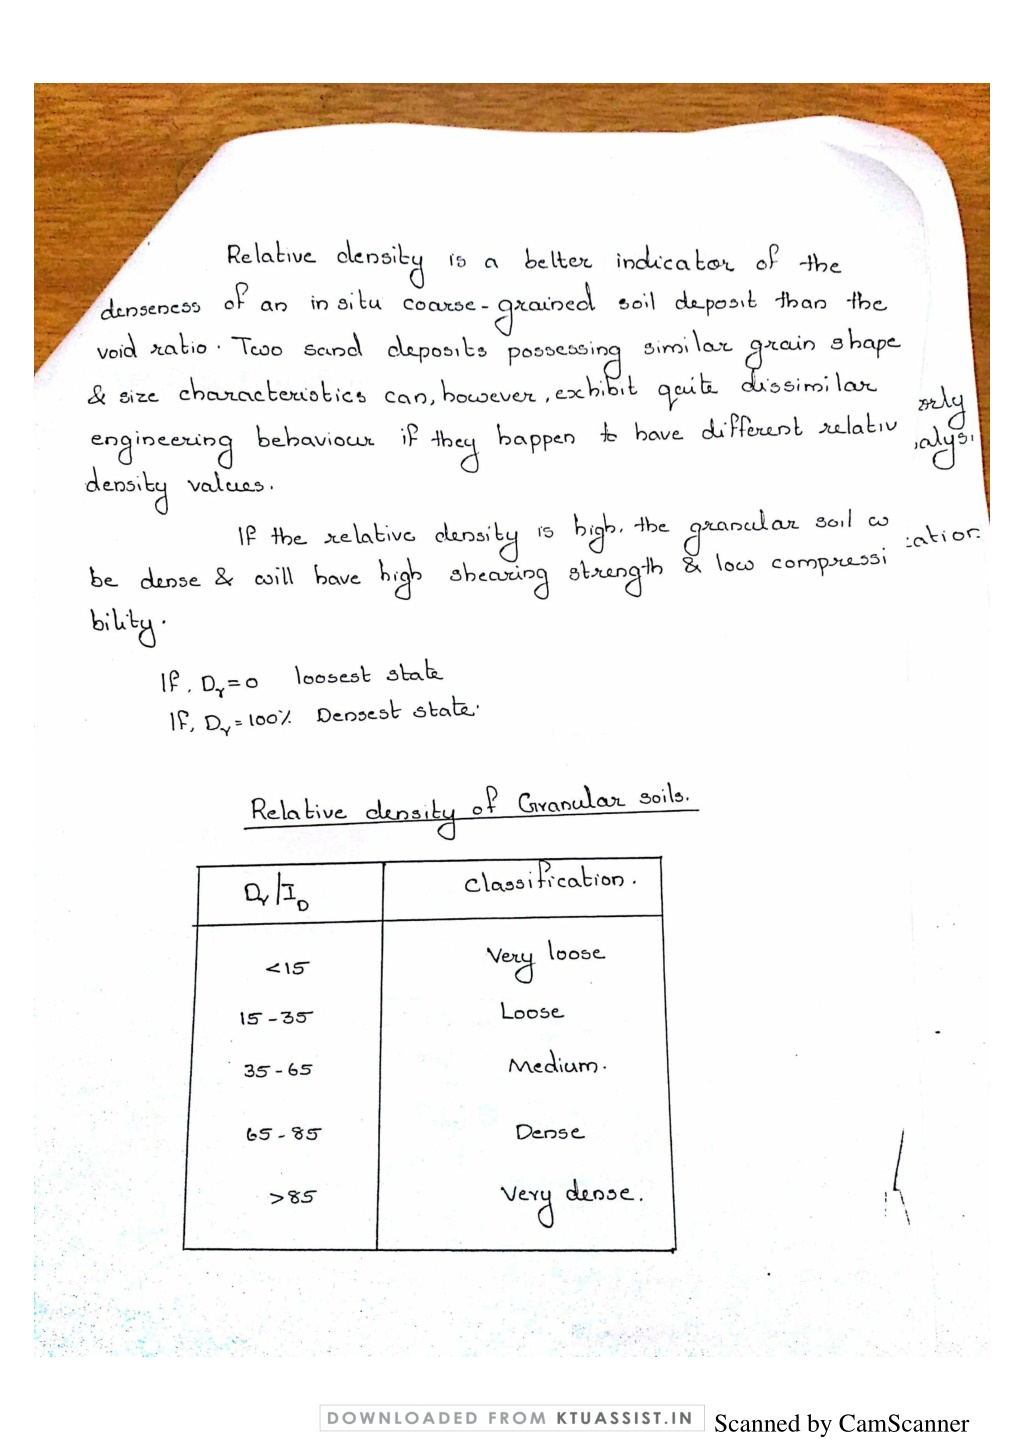 Relative density is a better indicator of the
denseness of an in situ coarse-grained soil deposit than the
void ratio. Two sand deposits possessing similar grain shape
& size characteristics can, however, exhibit quite dissimilar
engineering behaviour if they happen to have different relativ
density values.
If the relative density is high, the granular soil w
be dense & will have high shearing strength & low compressi
bility.
If, Dr=0 loosest state
If, Dr=100% Densest state.
Relative density of Granular soils.
Dr/ID Classification.
<15 Very loose
15-35 Loose
35-65 Medium.
65-85 Dense
>85 Very dense.
DOWNLOADED FROM KTUASSIST.IN
Scanned by CamScanner